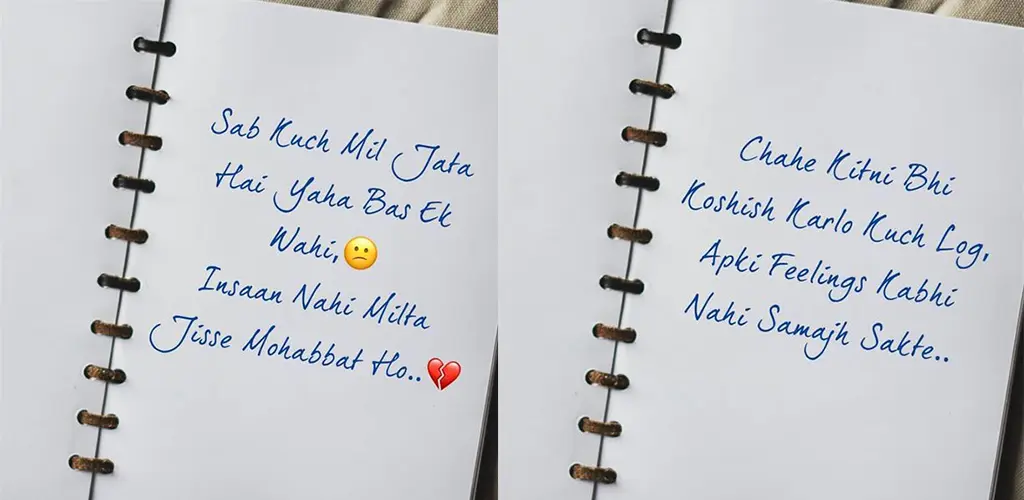 Sab Kuch Mil Jata
Hai Yaha Bas Ek
Wahi,😕
Insaan Nahi Milta
Jisse Mohabbat Ho..💔
Chahe Kitni Bhi
Koshish Karlo Kuch Log,
Apki Feelings Kabhi
Nahi Samajh Sakte..